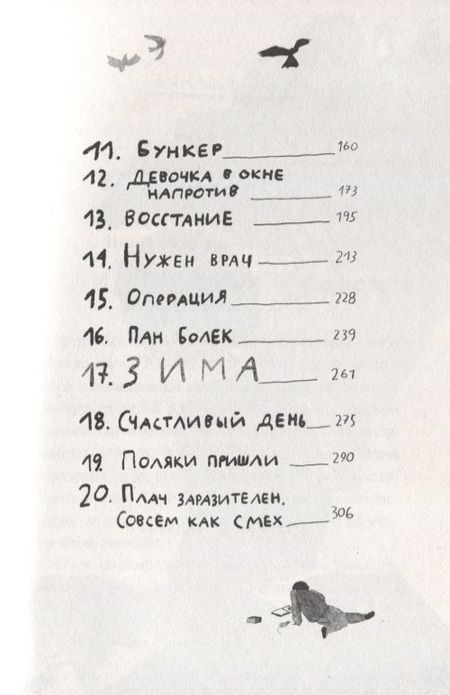 11. Бункер 160
12. Девочка в окне
напротив 173
13. Восстание 195
14. Нужен врач 213
15. Операция 228
16. Пан Болек 239
17. Зима 261
18. Счастливый день 275
19. Поляки пришли 290
20. Плач заразителен.
Совсем как смех 306